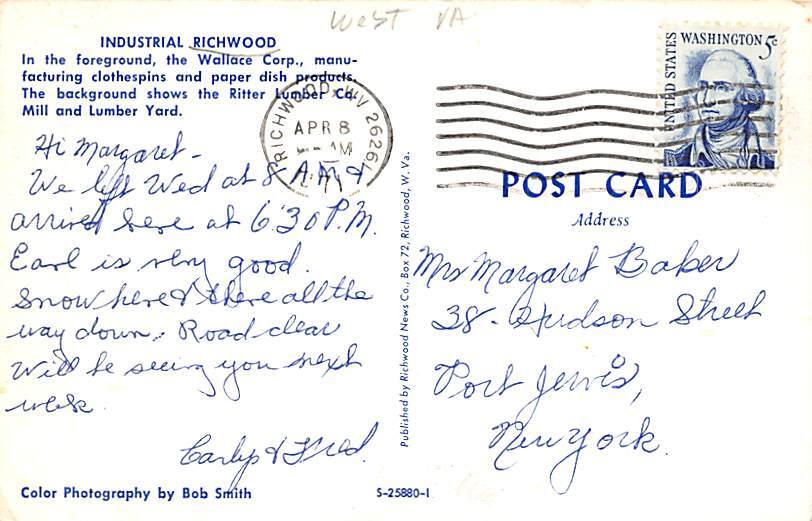 West VA
INDUSTRIAL RICHWOOD
In the foreground, the Wallace Corp., manu-
facturing clothespins and paper dish products.
The background shows the Ritter Lumber Co.
Mill and Lumber Yard.
RICHWOOD, WV 26261
APR 8
AM
Hi Margaret -
We left Wed at 8 A.M &
arrived here at 6:30 P.M.
Earl is very good.
Snow here & there all the
way down. Road clear
Will be seeing you next
week
& Fred.
Color Photography by Bob Smith
S-25880-1
Published by Richwood News Co., Box 72, Richwood, W. Va.
UNITED STATES
WASHINGTON 5c
POST CARD
Address
Mrs Margaret Baker
38 - Hudson Street
Port Jervis,
New York.